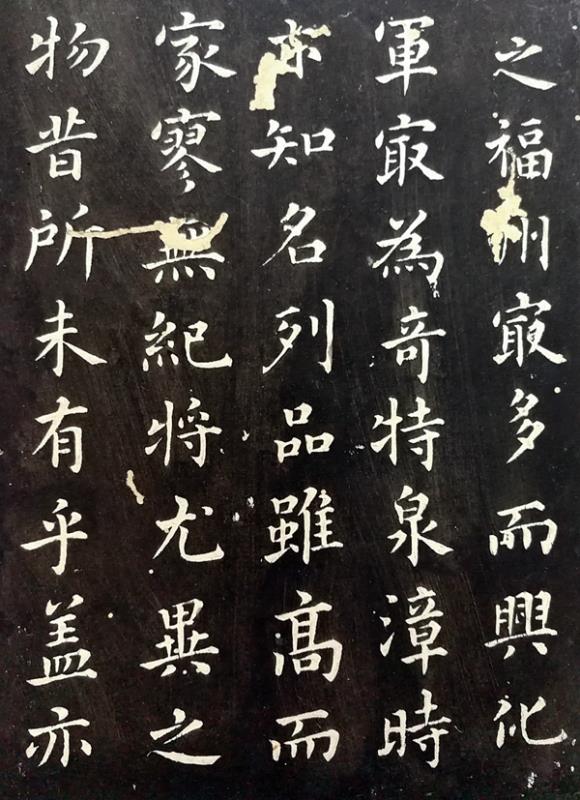 之福州㝡多而興化
軍㝡為奇特泉漳時
亦知名列品雖髙而
家寥無紀将尤異之
物昔所未有乎盖亦